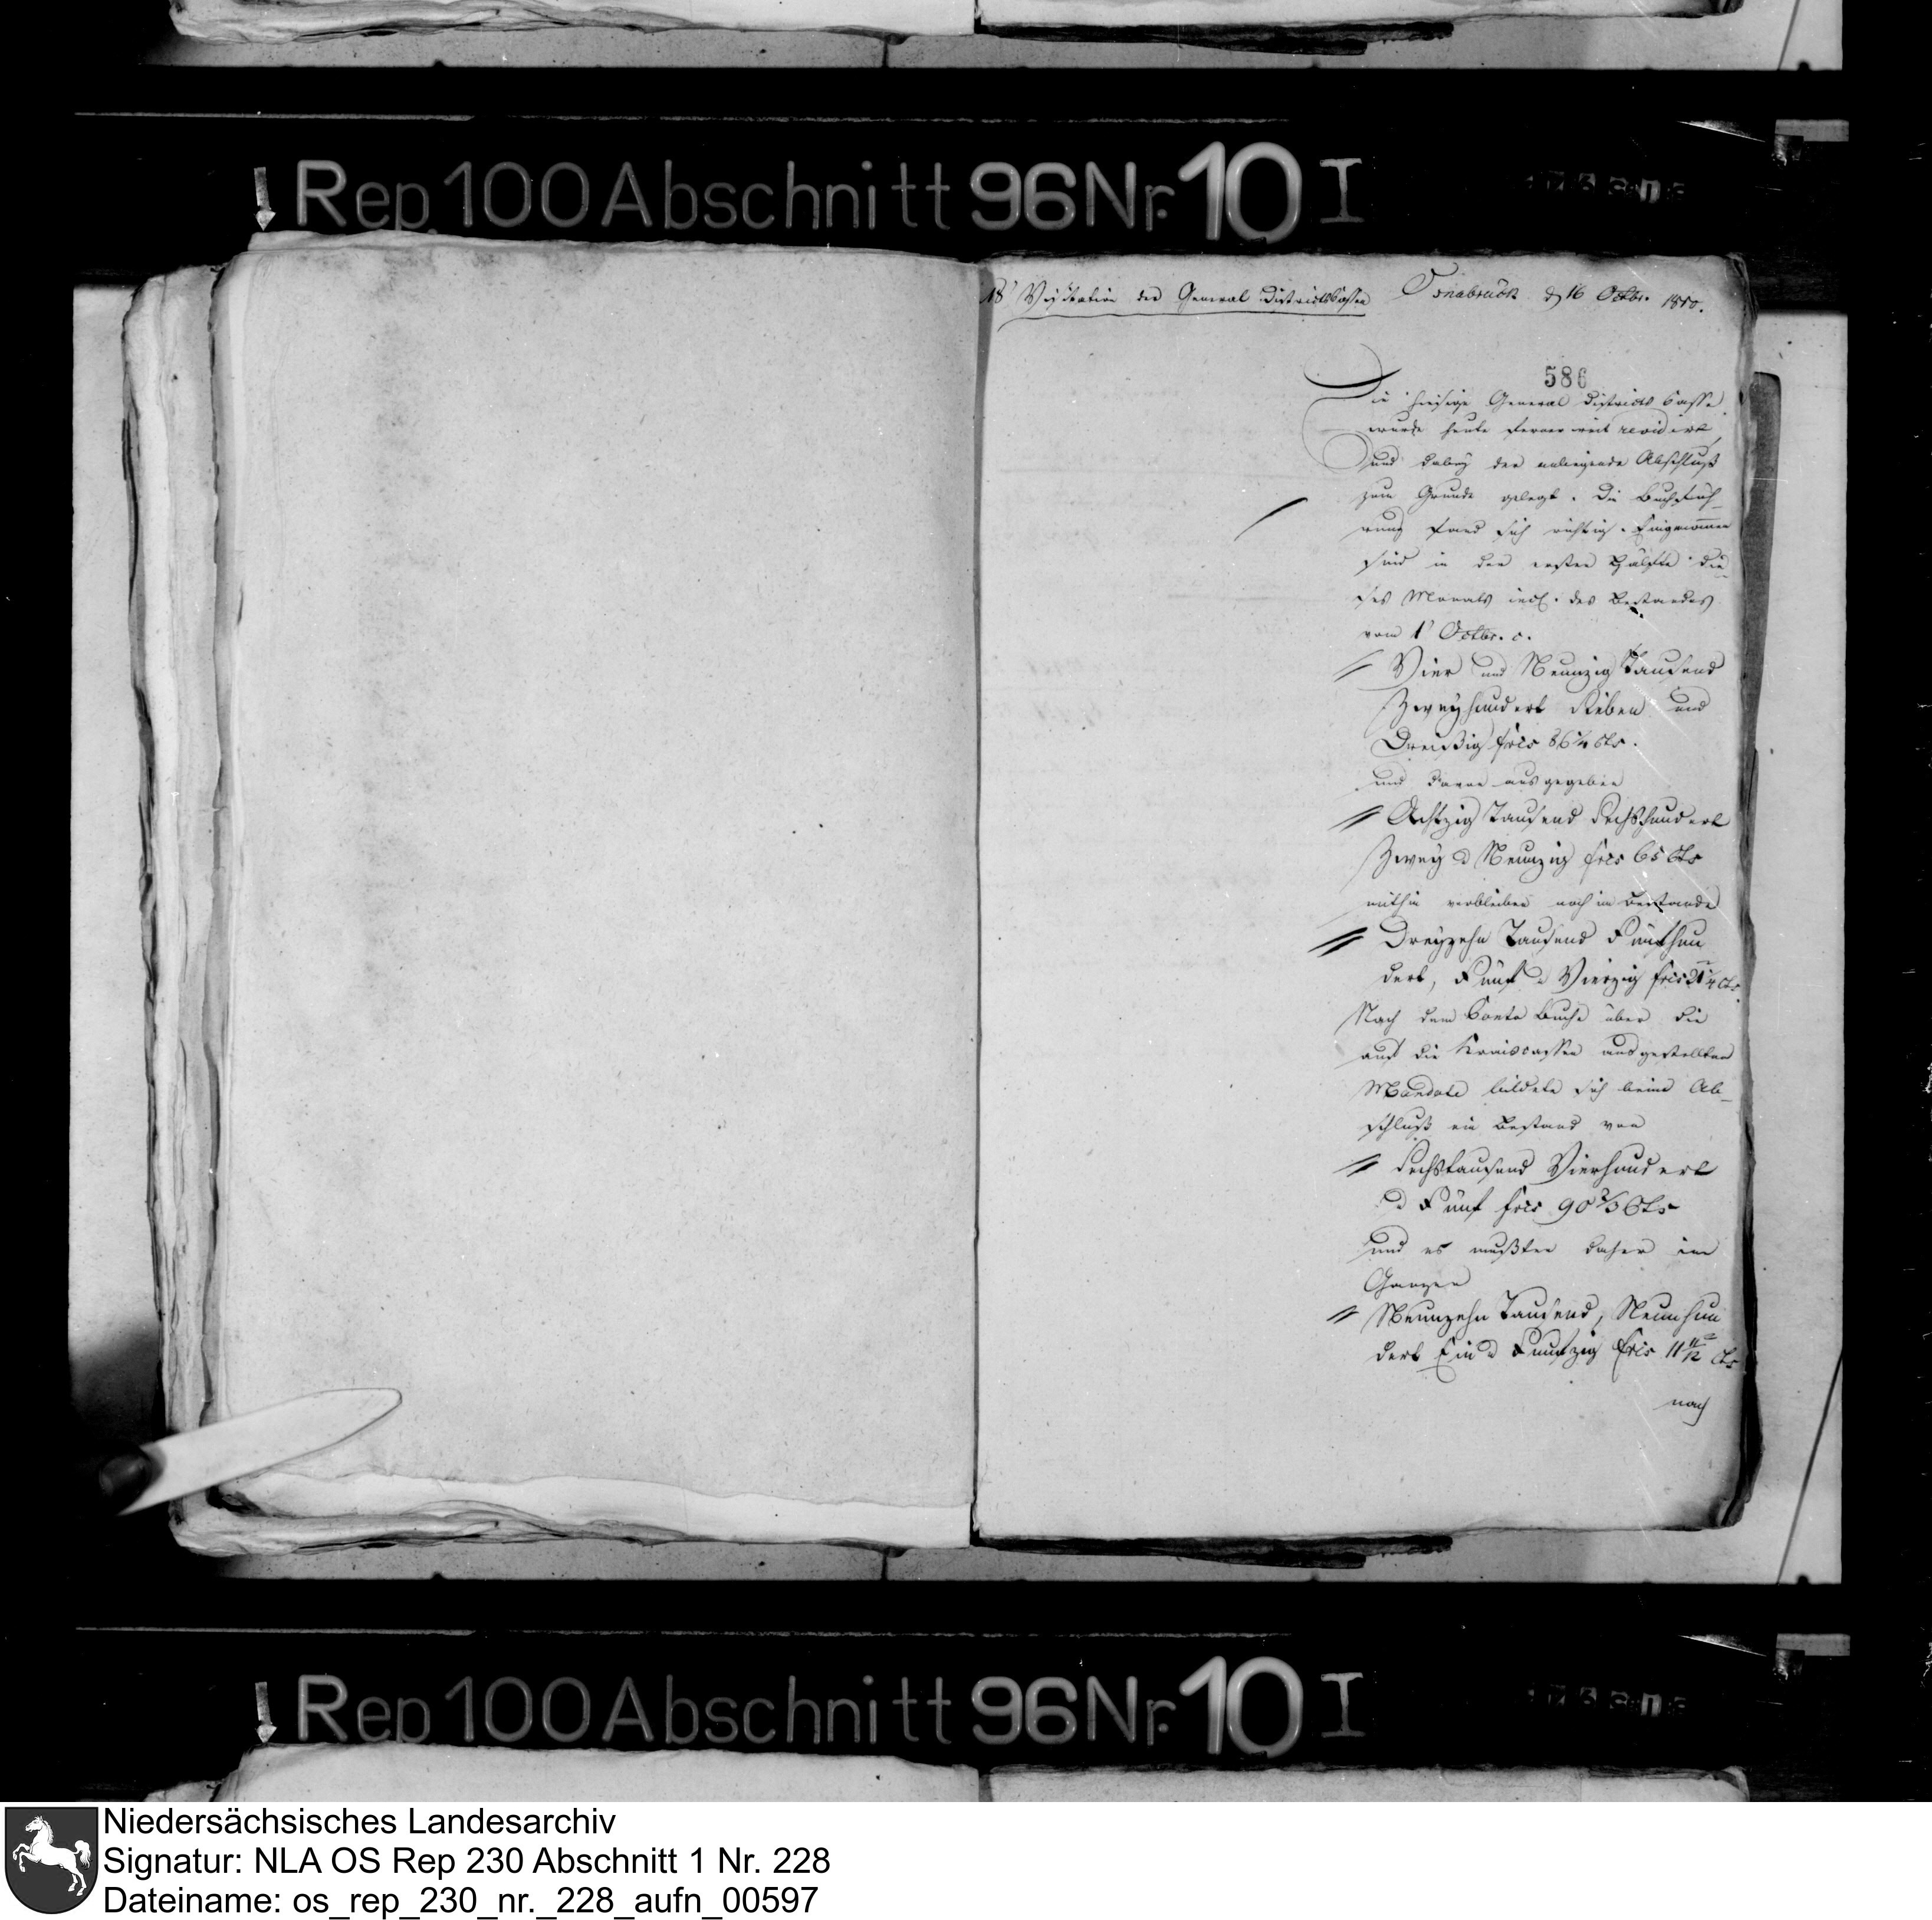 Rep. 100 Abschnitt 96 Nr. 10 I
18' Visitation der General Districtscasse Osnabrück d 16 Octbr. 1810.
586
Die hiesige General Districts Casse
wurde heute revidirt,
und dabey der anliegende Abschluß
zum Grunde gelegt. Die Buchfüh-
rung fand sich richtig. Eingenommen
sind in der ersten Hälfte die-
ses Monats incl. des Bestandes
vom 1' Octbr. c.
Vier und Neunzig Tausend
Zweyhundert Sieben und
Dreißig frcs 86 1/4 Cts.
und davon ausgegeben
Achtzig Tausend Sechshundert
Zwey u Neunzig frcs 65 Cts
mithin verbleiben noch im Bestande
Dreyzehn Tausend Fünfhun
dert, Fünf u Vierzig frcs 21 1/4 Cts.
Nach dem Conto Buche über die
auf die Kreiscassen ausgestellten
Mandate bildete sich beim Ab-
schluß ein Bestand von
Sechstausend Vierhundert
u Fünf frcs 90 2/3 Cts
und es mußten daher im
Ganzen
Neunzehn Tausend, Neunhun
dert Ein u Funfzig frcs 11 11/12 Cts
noch
Rep 100 Abschnitt 96 Nr. 10 I
Niedersächsisches Landesarchiv
Signatur: NLA OS Rep 230 Abschnitt 1 Nr. 228
Dateiname: os_rep_230_nr._228_aufn_00597